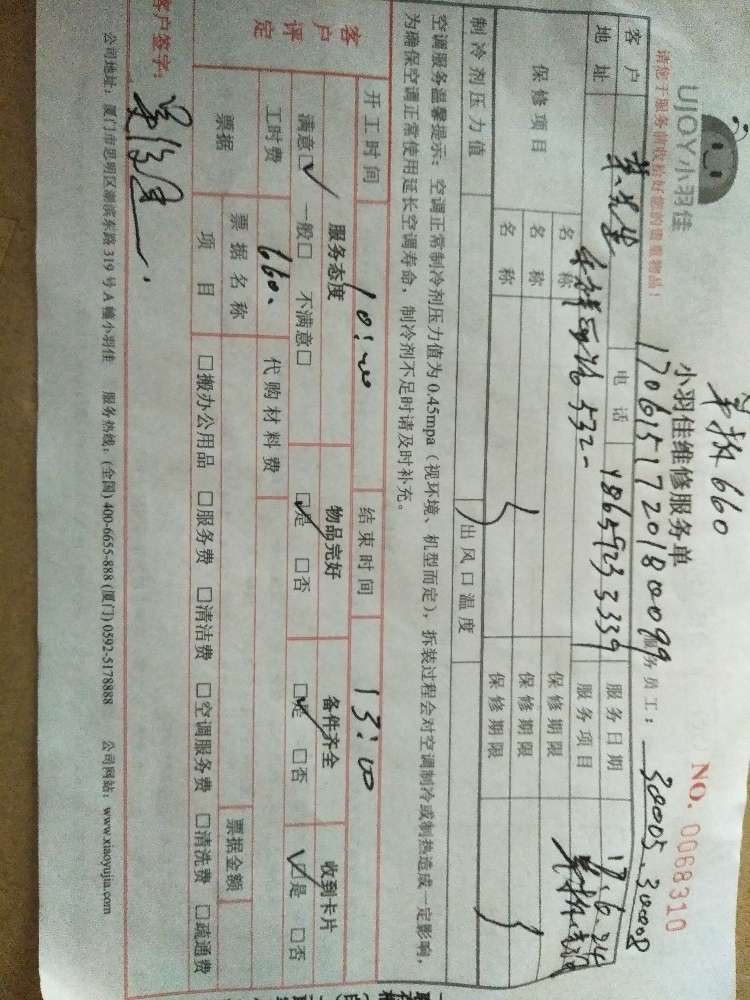 UJOY小羽佳
单拆660
小羽佳维修服务单
NO. 0068310
请您于服务前收拾好您的贵重物品!
17061517201800099
服务员工: 30005.30008
客户 电话 18659233339 服务日期 17.6.24
地址 532- 服务项目
保修项目 名称 保修期限
名称 保修期限
名称 保修期限
制冷剂压力值 出风口温度
空调服务温馨提示: 空调正常制冷剂压力值为 0.45mpa (视环境、机型而定), 拆装过程会对空调制冷或制热造成一定影响,
为确保空调正常使用延长空调寿命, 制冷剂不足时请及时补充。
开工时间 10:00 结束时间 13:00
客户评定 服务态度 物品完好 备件齐全 收到卡片
满意☑ 一般□ 不满意□ ☑是 □否 ☑是 □否 ☑是 □否
工时费 660. 代购材料费
票据 票据名称 票据金额
项目 □搬办公用品 □服务费 □清洁费 □空调服务费 □清洗费 □疏通费
客户签字:
公司地址: 厦门市思明区湖滨东路 319 号 A 幢小羽佳 服务热线: (全国) 400-6655-888 (厦门) 0592-5178888 公司网站: www.xiaoyujia.com